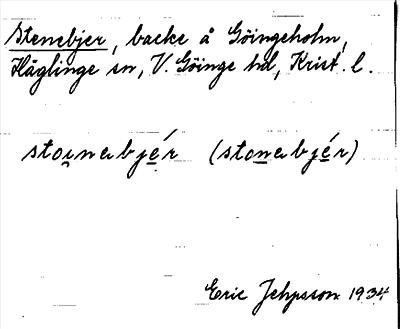 Stenebjer, backe å Göingeholm,
Häglinge sn, V. Göinge hd, Krist. l.
stoınabjér (stonabjér)
Eric Jepsson 1934